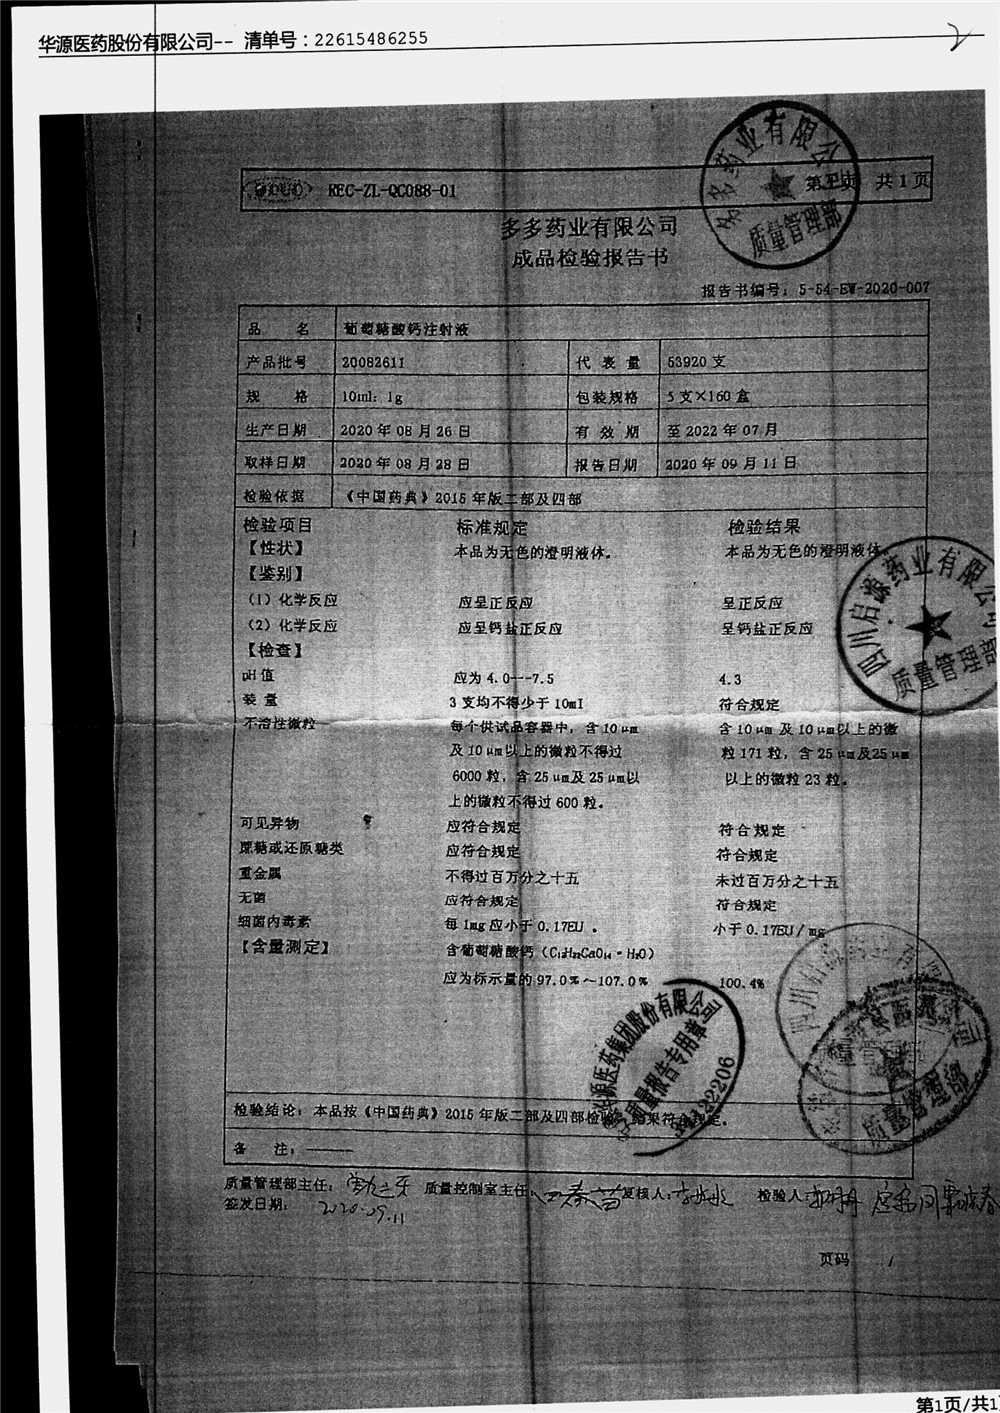 华源医药股份有限公司-- 清单号：22615486255
2
REC-ZL-QC088-01 共 1 页
多多药业有限公司
质量管理部
多多药业有限公司
成品检验报告书
报告书编号：5-54-EW-2020-007
品 名 葡萄糖酸钙注射液
产品批号 20082611 代 表 量 53920 支
规 格 10ml：1g 包装规格 5 支×160 盒
生产日期 2020 年 08 月 26 日 有 效 期 至 2022 年 07 月
取样日期 2020 年 08 月 28 日 报告日期 2020 年 09 月 11 日
检验依据 《中国药典》2015 年版二部及四部
检验项目 标准规定 检验结果
【性状】 本品为无色的澄明液体。 本品为无色的澄明液体
【鉴别】
（1）化学反应 应呈正反应 呈正反应
（2）化学反应 应呈钙盐正反应 呈钙盐正反应
四川启源药业有限公
质量管理部
【检查】
pH 值 应为 4.0---7.5 4.3
装 量 3 支均不得少于 10ml 符合规定
不溶性微粒 每个供试品容器中，含 10 μm 含 10 μm 及 10 μm以上的微
及 10 μm以上的微粒不得过 粒 171 粒，含 25 μm及25 μm
6000 粒，含 25 μm及 25 μm以 以上的微粒 23 粒。
上的微粒不得过 600 粒。
可见异物 应符合规定 符合规定
蔗糖或还原糖类 应符合规定 符合规定
重金属 不得过百万分之十五 未过百万分之十五
无菌 应符合规定 符合规定
细菌内毒素 每 1mg 应小于 0.17EU 。 小于 0.17EU／mg
【含量测定】 含葡萄糖酸钙（C₁₂H₂₂CaO₁₄·H₂O）
应为标示量的 97.0％～107.0％ 100.4％
源医药集团股份有限公司
质量报告专用章
质量管理部
检验结论：本品按《中国药典》2015 年版二部及四部检 结果符合规定。
备 注：———
质量管理部主任： 质量控制室主任 复核人： 检验人
签发日期： 2020.09.11
页码 1
第1页/共1